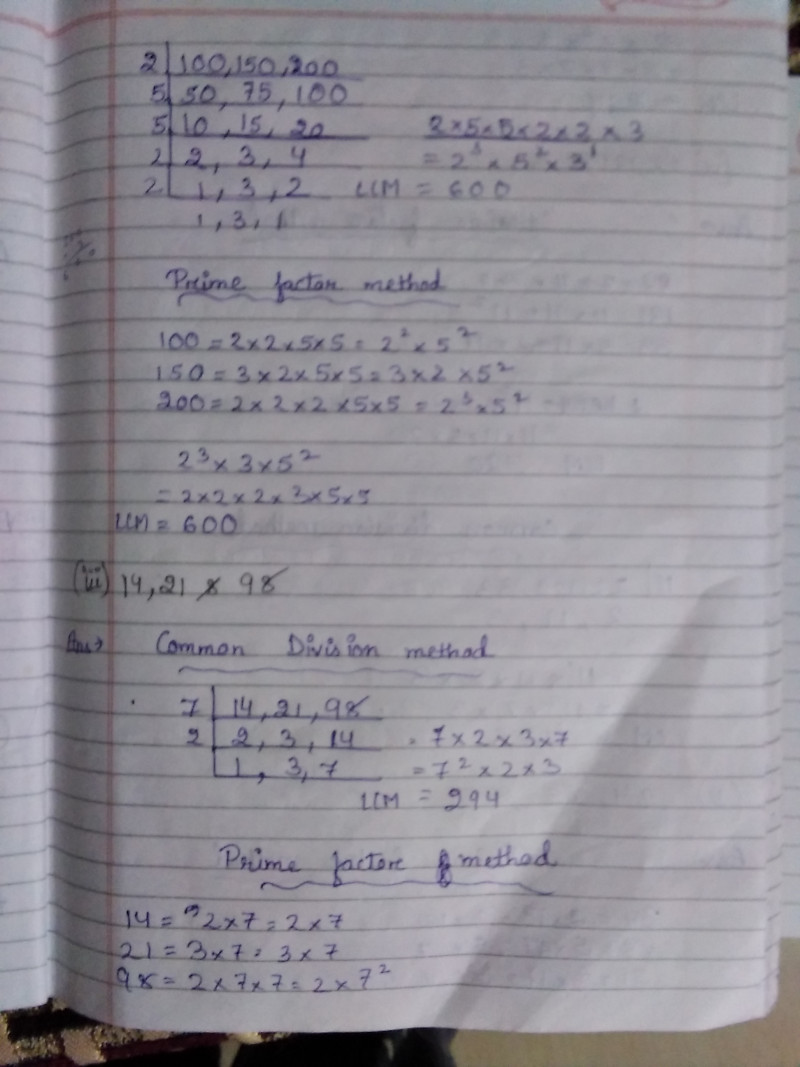 2 | 100, 150, 200
5 | 50, 75, 100
5 | 10, 15, 20    2×5×5×2×2×3
2 | 2, 3, 4    = 2³ × 5² × 3¹
2 | 1, 3, 2    LCM = 600
1, 3, 1
Prime factor method
100 = 2×2×5×5 = 2² × 5²
150 = 3×2×5×5 = 3×2×5²
200 = 2×2×2×5×5 = 2³×5²
2³×3×5²
= 2×2×2×3×5×5
LCM = 600
(iii) 14, 21 & 98
Ans→ Common Division method
7 | 14, 21, 98
2 | 2, 3, 14    = 7×2×3×7
1, 3, 7    = 7²×2×3
LCM = 294
Prime factor method
14 = 2×7 = 2×7
21 = 3×7 = 3×7
98 = 2×7×7 = 2×7²